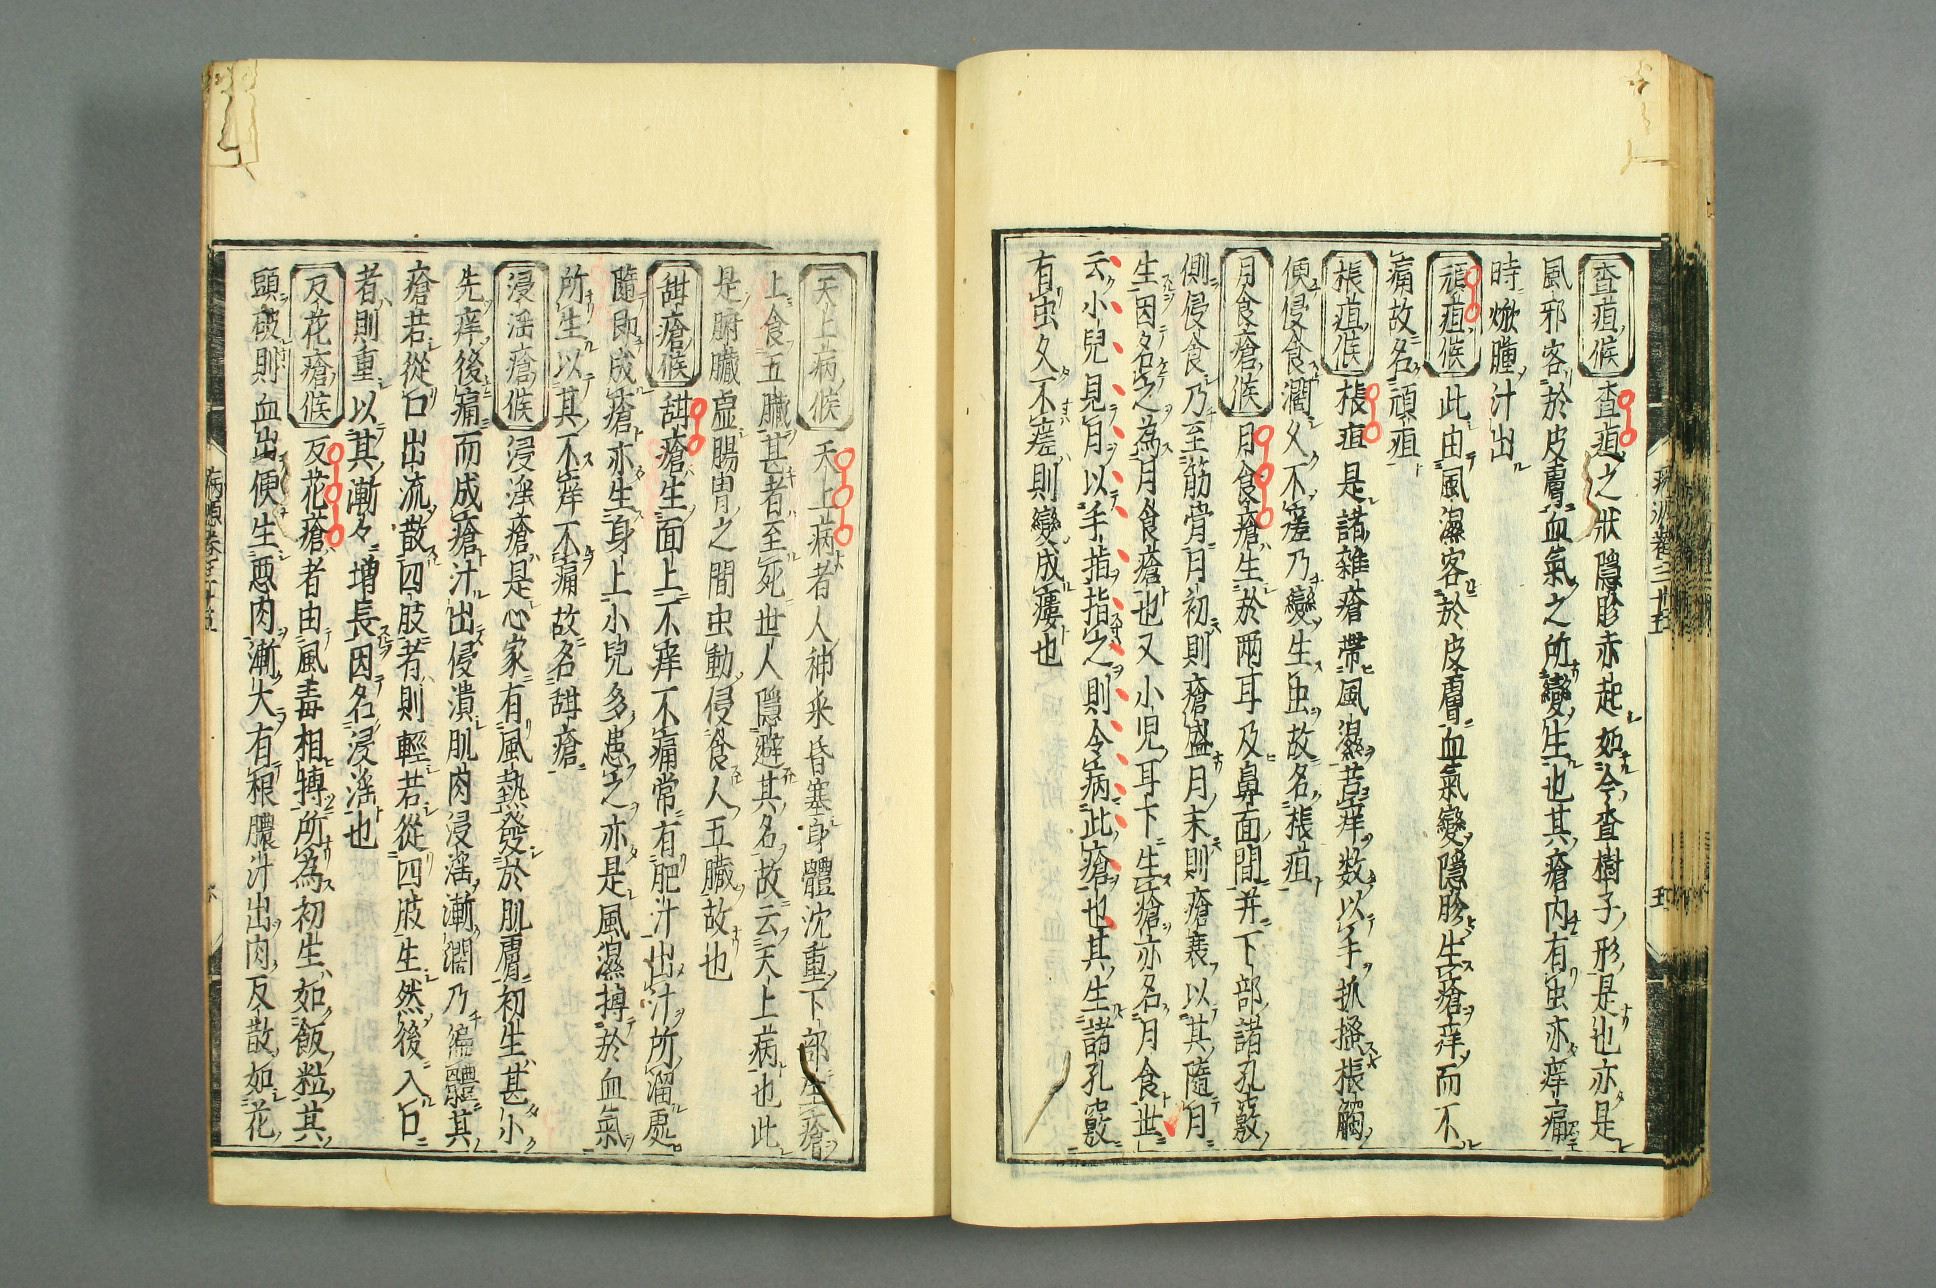 査疽候 査疽之狀隱胗赤起如今査樹子形是也亦是
風邪客於皮膚血氣之所變生也其瘡内有虫亦痒痛
時焮腫汁出
頑疽候 此由風濕客於皮膚血氣變隱胗生瘡痒而不
痛故名頑疽
棖疽候 棖疽是諸雜瘡帶風濕苦痒数以手抓搔棖觸
便侵食濶久不瘥乃變生虫故名棖疽
月食瘡候 月食瘡生於兩耳及鼻面間并下部諸孔竅
側侵食乃至筋骨月初則瘡盛月末則瘡衰以其隨月
生因名之為月食瘡也又小児耳下生瘡亦名月食世
云小兒見月以手指指之則令病此瘡也其生諸孔竅
有虫久不瘥則變成瘻也
天上病候 天上病者人神采昏塞身體沈重下部生瘡
上食五臟甚者至死世人隱避其名故云天上病也此
是腑臟虚腸胃之間虫動侵食人五臟故也
甜瘡候 甜瘡生面上不痒不痛常有肥汁出汁所溜處
隨即成瘡亦生身上小兒多患之亦是風濕搏於血氣
所生以其不痒不痛故名甜瘡
浸淫瘡候 浸淫瘡是心家有風熱發於肌膚初生甚小
先痒後痛而成瘡汁出侵潰肌肉浸淫漸濶乃徧體其
瘡若從口出流散四肢者則輕若從四肢生然後入口
者則重以其漸々増長因名浸淫也
反花瘡候 反花瘡者由風毒相搏所為初生如飯粒其
頭破則血出便生悪肉漸大有根膿汁出肉反散如花